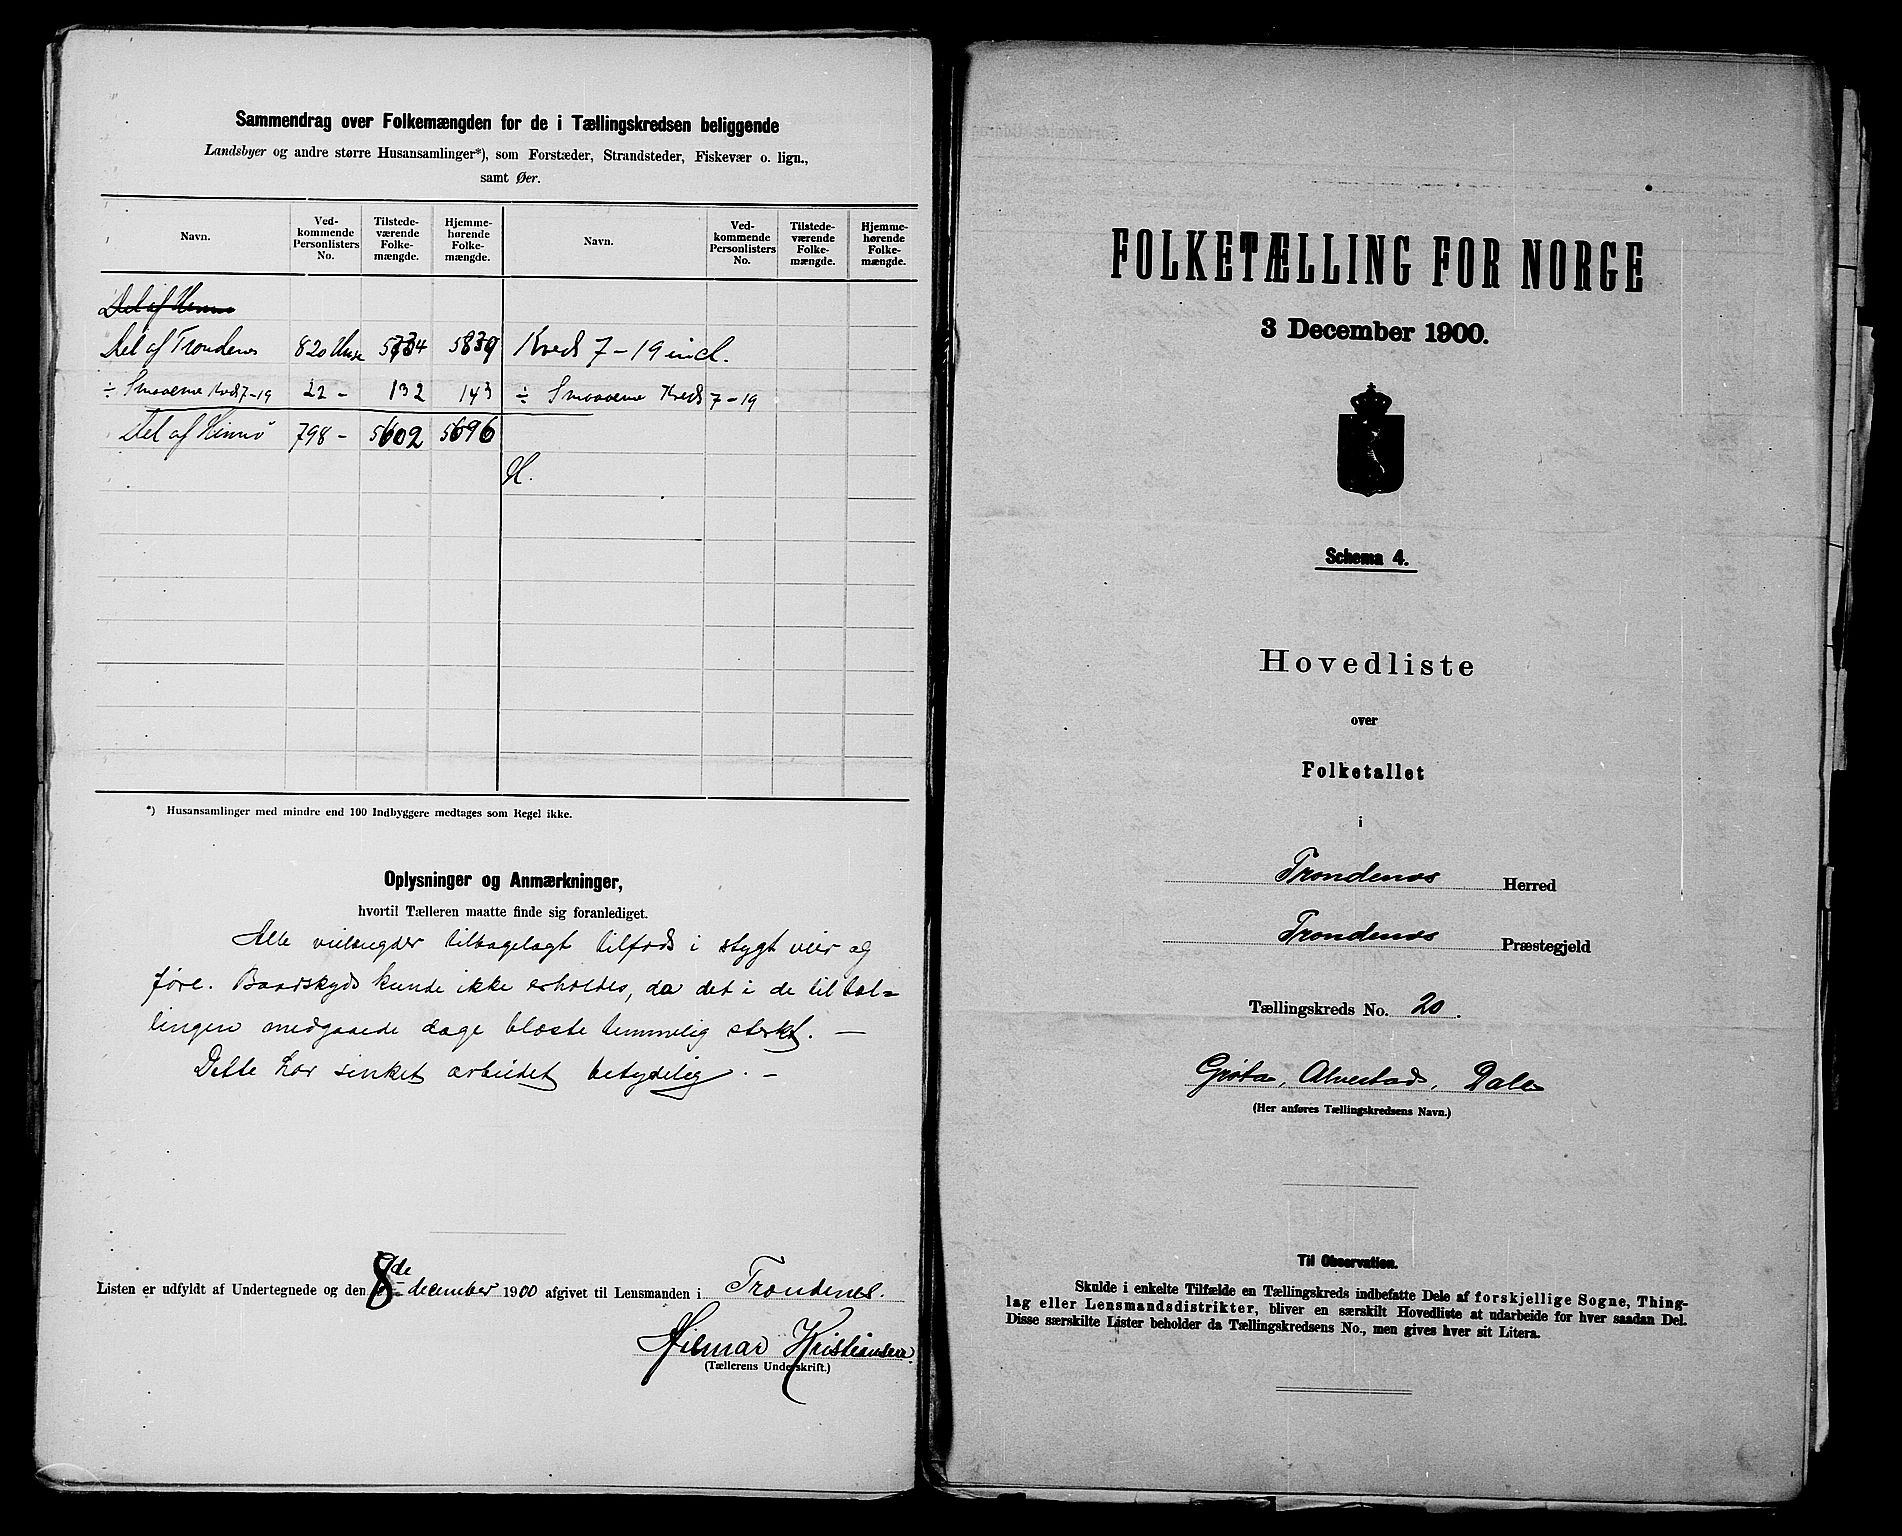 Sammendrag over Folkemængden for de i Tællingskredsen beliggende
Landsbyer og andre større Husansamlinger*), som Forstæder, Strandsteder, Fiskevær o. lign.,
samt Øer.
Navn. Ved-kommende Personlisters No. Tilstede-værende Folke-mængde. Hjemme-hørende Folke-mængde. Navn. Ved-kommende Personlisters No. Tilstede-værende Folke-mængde. Hjemme-hørende Folke-mængde.
Del af Hinnø
Del af Trondenes 820 Huse 5734 5839 Kreds 7-19 incl.
÷ Smaaøerne Kreds 7-19 22 - 132 143 ÷ Smaaøerne Kreds 7-19
Del af Hinnø 798 - 5602 5696
H.
*) Husansamlinger med mindre end 100 Indbyggere medtages som Regel ikke.
Oplysninger og Anmærkninger,
hvortil Tælleren maatte finde sig foranlediget.
Alle veilængder tilbagelagt tilfods i stygt veir og
føre. Baadskyds kunde ikke erholdes, da det i de til tæl=
lingen medgaaede dage blæste temmelig sterkt. —
Dette har sinket arbeidet betydelig. —
Listen er udfyldt af Undertegnede og den 8de december 1900 afgivet til Lensmanden i Trondenes.
Hilmar Kristiansen.
(Tællerens Underskrift.)
FOLKETÆLLING FOR NORGE
3 December 1900.
Schema 4.
Hovedliste
over
Folketallet
i
Trondenes Herred
Trondenes Præstegjeld
Tællingskreds No. 20.
Grøta, Alvestad, Dale
(Her anføres Tællingskredsens Navn.)
Til Observation.
Skulde i enkelte Tilfælde en Tællingskreds indbefatte Dele af forskjellige Sogne, Thing-
lag eller Lensmandsdistrikter, bliver en særskilt Hovedliste at udarbeide for hver saadan Del.
Disse særskilte Lister beholder da Tællingskredsens No., men gives hver sit Litera.